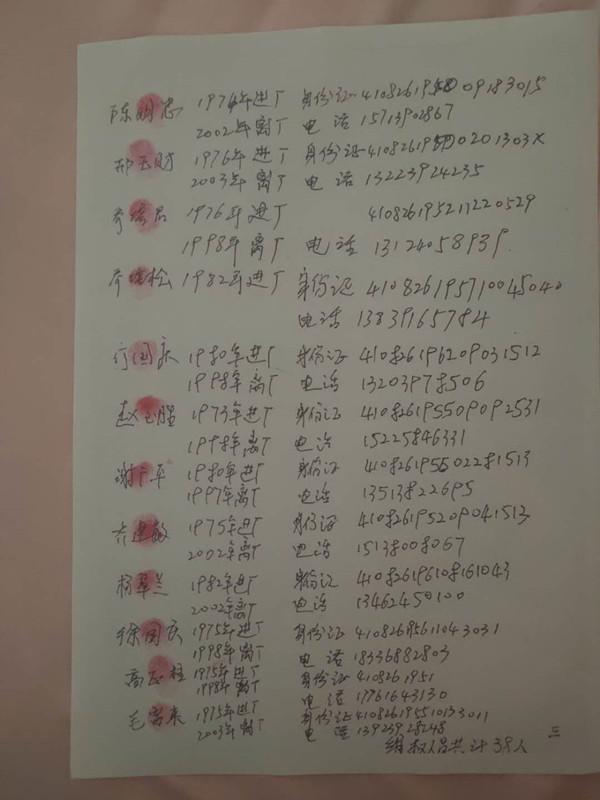 陈 志 1974年进厂 身份证 09183015
2002年离厂 电话 15713902867
祁玉财 1976年进厂 身份证 0201303X
2003年离厂 电话 13223924235
1976年进厂 410826195211220529
1998年离厂 电话 13124058939.
松 1982年进厂 身份证 410826195710045040
电话 13839165784
国庆 1980年进厂 身份证 410826196209031512
1998年离厂 电话 13203978506
赵玉 1973年进厂 身份证 410826195509092531
1998年离厂 电话 15225846331
谢 平 1980年进厂 身份证 410826195502281513
1997年离厂 电话 13513822695
建敏 1975年进厂 身份证 410826195209041513
2002年离厂 电话 15138008067
杨翠兰 1982年进厂 身份证 410826196108161043
2002年离厂 电话 13462450100
徐国庆 1975年进厂 身份证
1998年离厂 电话 18336882803
高 柱 1975年进厂 身份证 4108261951
1998年离厂 电话 17761643130
毛富来 1975年进厂 身份证 410826195510133011
2003年离厂 电话 13923928248
维权人员共计38人 三